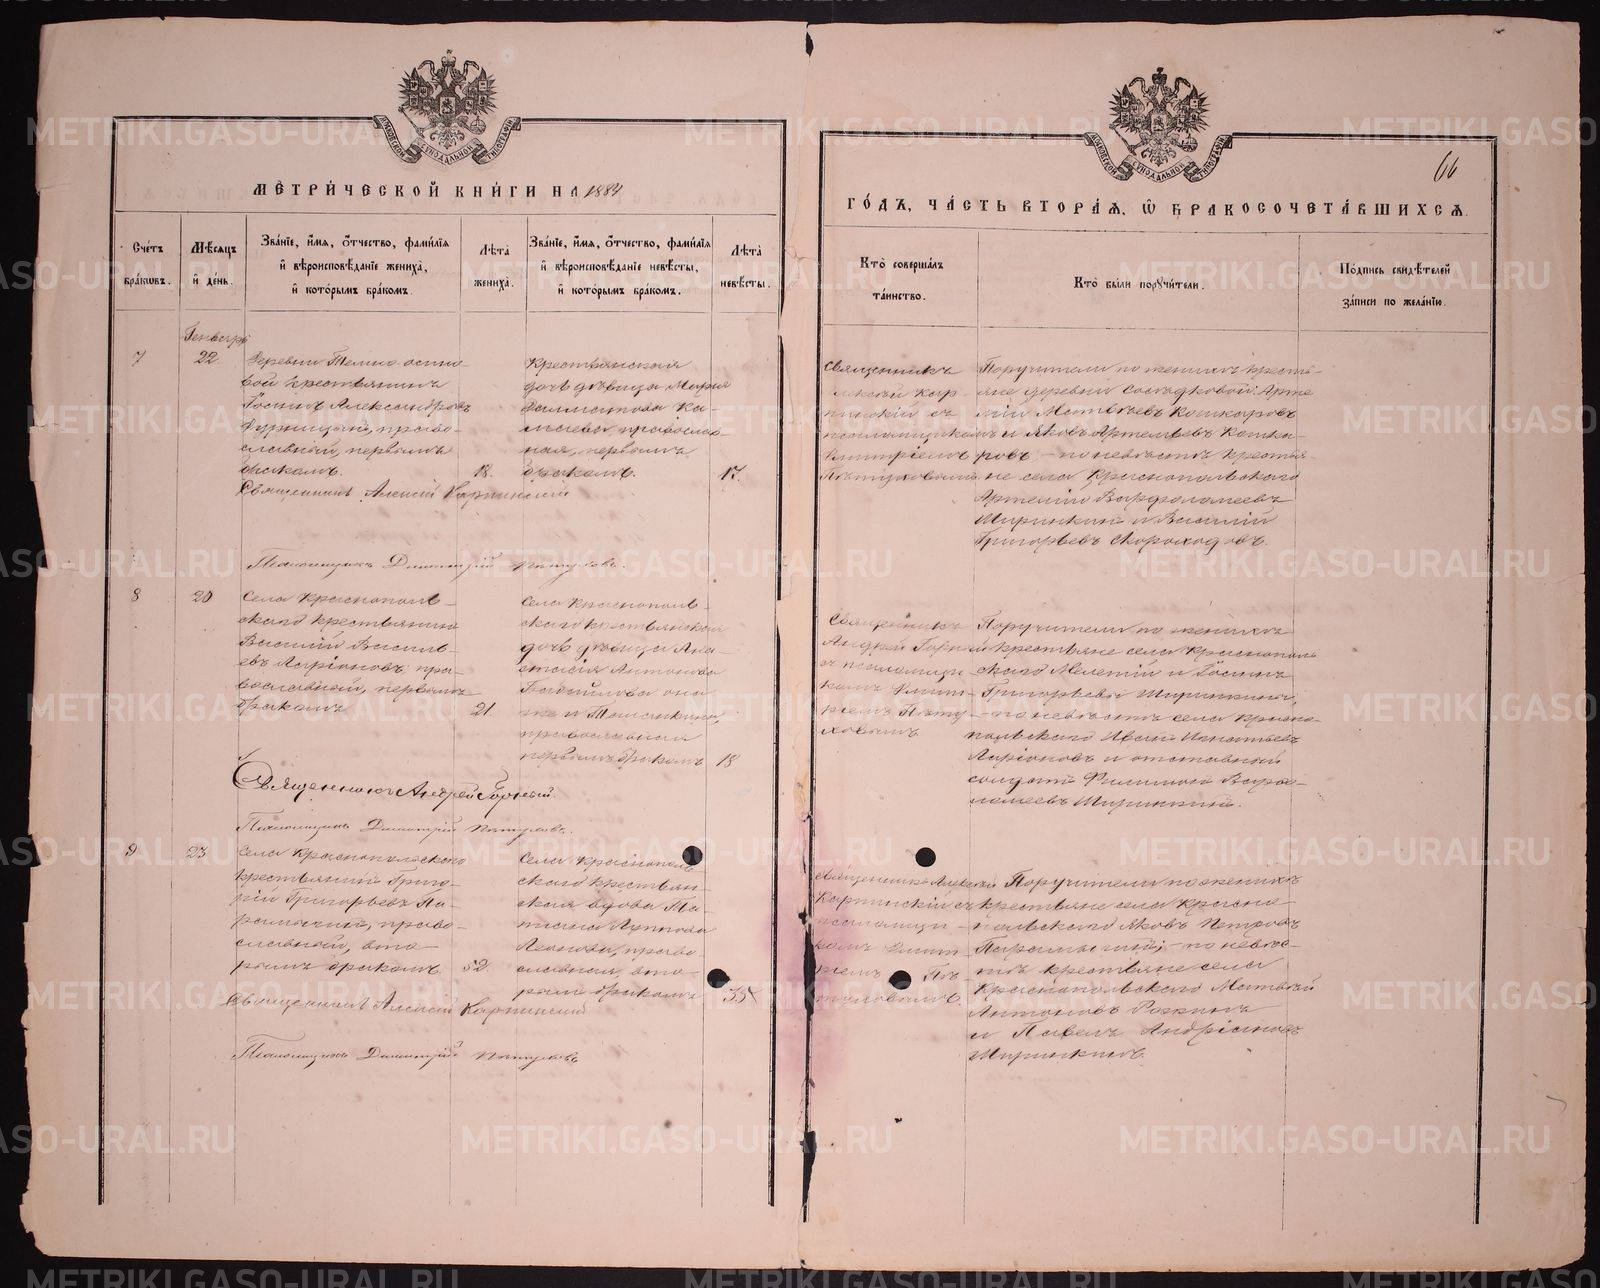 МЕТРИЧЕСКОЙ КНИГИ НА 1884
Счетъ браковъ.
Мѣсяцъ и день.
Званіе, имя, отчество, фамилія и вѣроисповѣданіе жениха, и которымъ бракомъ.
Лѣта жениха.
Званіе, имя, отчество, фамилія и вѣроисповѣданіе невѣсты, и которымъ бракомъ.
Лѣта невѣсты.
Генварь
7
22
Деревни
вой крестьянинъ
Іосифъ Александровъ
право-
славный, первымъ
бракомъ.
18.
Крестьянская
дочь дѣвица Марія
православ-
ная, первымъ
бракомъ.
17.
Священникъ Алексій Карпинскій
Псаломщикъ Димитрій Пѣтуховъ.
8
20
Села Краснополь-
скаго крестьянинъ
Василій Василь-
евъ Ларіоновъ, пра-
вославный, первымъ
бракомъ
21.
Села Краснополь-
скаго крестьянская
дочь дѣвица Ана-
стасія Антонова
она
же и
православная
первымъ бракомъ
18
Священникъ Андрей Горный.
Псаломщикъ Димитрій Пѣтуховъ.
9
23
Села Краснопольскаго
крестьянинъ Григо-
рій Григорьевъ Па-
право-
славный, вто-
рымъ бракомъ
52.
Села Краснополь-
скаго крестьян-
ская вдова Та-
тіана
право-
славная, вто-
рымъ бракомъ
35
Священникъ Алексій Карпинскій
Псаломщикъ Димитрій Пѣтуховъ
66
ГОДЪ, ЧАСТЬ ВТОРАЯ, Ѡ БРАКОСОЧЕТАВШИХСЯ.
Кто совершалъ таинство.
Кто были поручители.
Подпись свидѣтелей записи по желанію.
Священникъ
Алексій Кар-
пинскій съ
псаломщикомъ
Димитріемъ
Пѣтуховымъ
Поручители по женихѣ кресть-
яне деревни Сосѣдковой: Арте-
мій Матвѣевъ Кошкаровъ
и Яковъ Артемьевъ Кошка-
ровъ – по невѣстѣ крестья-
не села Краснопольскаго
Артемій Варфоломеевъ
Ширинкинъ и Василій
Григорьевъ Скороходовъ.
Священникъ
Андрей Горный
съ псаломщи-
комъ Димит-
ріемъ Пѣту-
ховымъ
Поручители по женихѣ
крестьяне села Краснополь-
скаго Мелетій и Іосифъ
Григорьевы Ширинкины,
– по невѣстѣ села Красно-
польскаго Иванъ Игнатьевъ
Ларіоновъ и отставной
солдатъ Филиппъ Варѳо-
ломеевъ Ширинкинъ.
Священникъ Алексій
Карпинскій съ
псаломщи-
комъ Димит-
ріемъ Пѣ-
туховымъ.
Поручители по женихѣ
крестьяне села Красно-
польскаго Яковъ Петровъ
по невѣс-
тѣ крестьяне села
Краснопольскаго Матвѣй
Антоновъ
и Павелъ Андріановъ
Ширинкинъ.